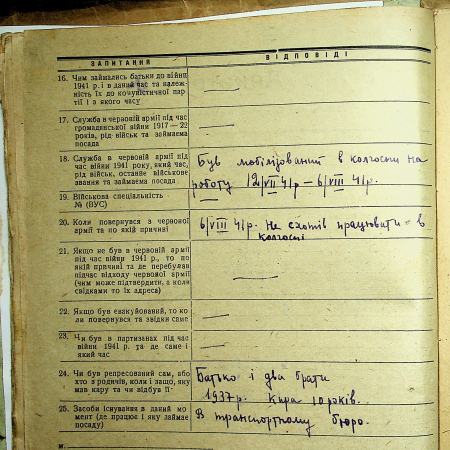 ЗАПИТАННЯ
ВІДПОВІДІ
16. Чим займались батьки до війни
1941 р. і в даний час та належ-
ність їх до комуністичної пар-
тії і з якого часу
—
17. Служба в червоній армії під час
громадянської війни 1917—22
років, рід військ та займаєма
посада
—
18. Служба в червоній армії під
час війни 1941 року, який час,
рід військ, останнє військове
звання та займаєма посада
Був мобілізований в колгосп на
роботу 12/VII 41р — 6/VIII 41р.
19. Військова спеціальність
№ (ВУС)
20. Коли повернувся з червоної
армії та по якій причині
6/VIII 41р. Не схотів працювати в
колгоспі
21. Якщо не був в червоній армії
під час війни 1941 р., то по
якій причині та де перебував
підчас відходу червоної армії
(чим може підтвердити, а коли
свідками то їх адреса)
—
22. Якщо був евакуйований, то ко-
ли повернувся та звідки саме
—
23. Чи був в партизанах під час
війни 1941 р. та де саме і
який час
—
24. Чи був репресований сам, або
хто з родичів, коли і защо, яку
мав кару та чи відбув її
Батько і два брати
1937р. Кара 10 років.
25. Засоби існування в даний мо-
мент (де працює і яку займає
посаду)
В транспортному бюро.